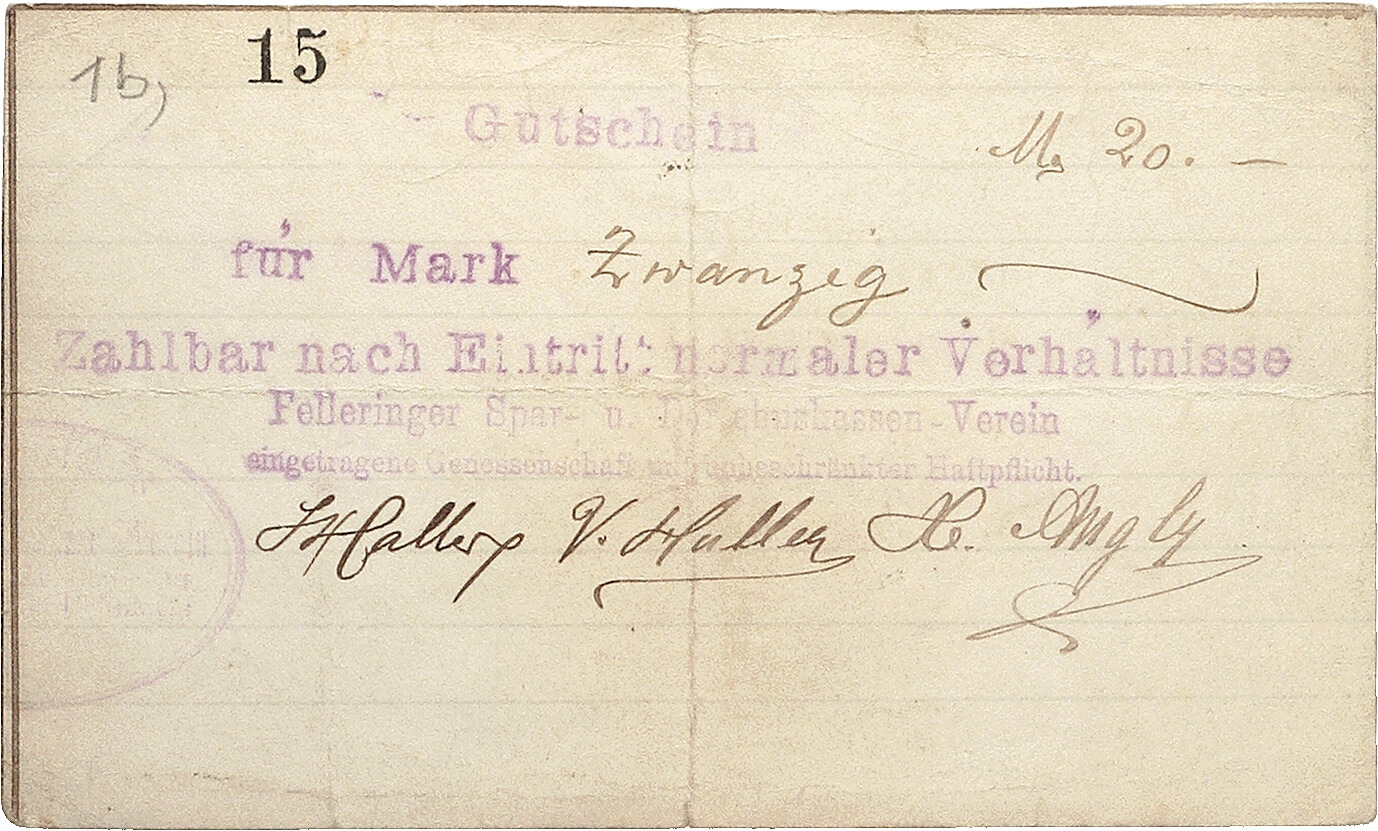 1b,
15
Gutschein
M. 20. —
für Mark Zwanzig
Zahlbar nach Eintritt normaler Verhältnisse
Felleringer Spar- u. Darlehnskassen-Verein
eingetragene Genossenschaft mit unbeschränkter Haftpflicht.
V. Haller